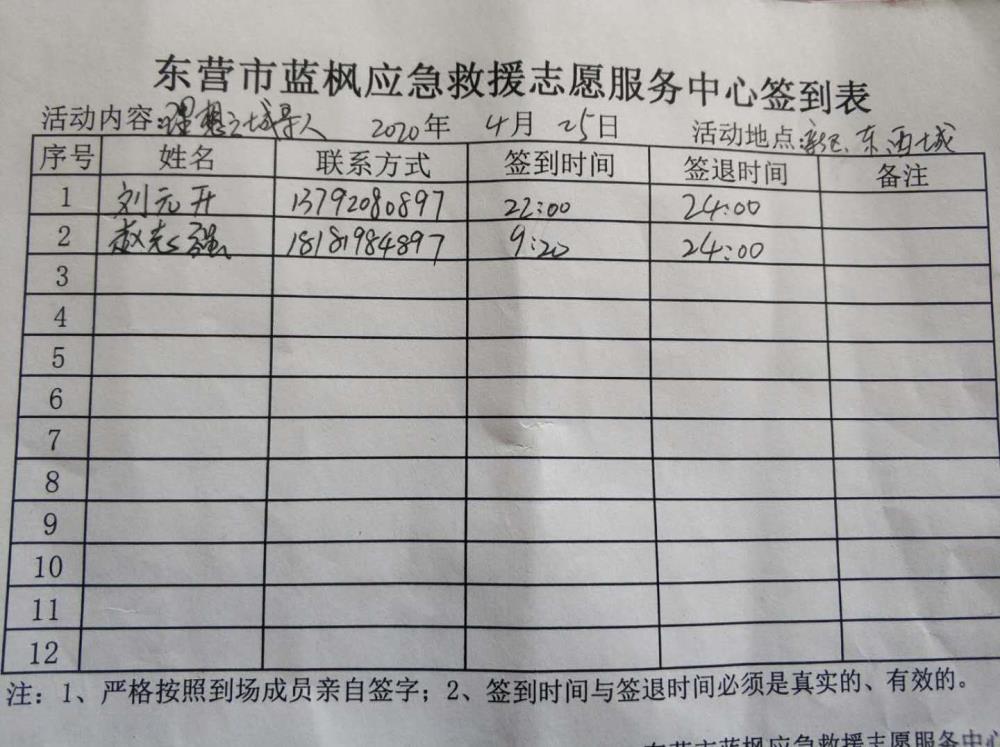 东营市蓝枫应急救援志愿服务中心签到表
活动内容:理想之城寻人 2020年 4月 25日 活动地点:新区、东西城
序号 姓名 联系方式 签到时间 签退时间 备注
1 刘元开 13792080897 22:00 24:00
2 赵志强 18181984897 9:20 24:00
3
4
5
6
7
8
9
10
11
12
注：1、严格按照到场成员亲自签字；2、签到时间与签退时间必须是真实的、有效的。
东营市蓝枫应急救援志愿服务中心